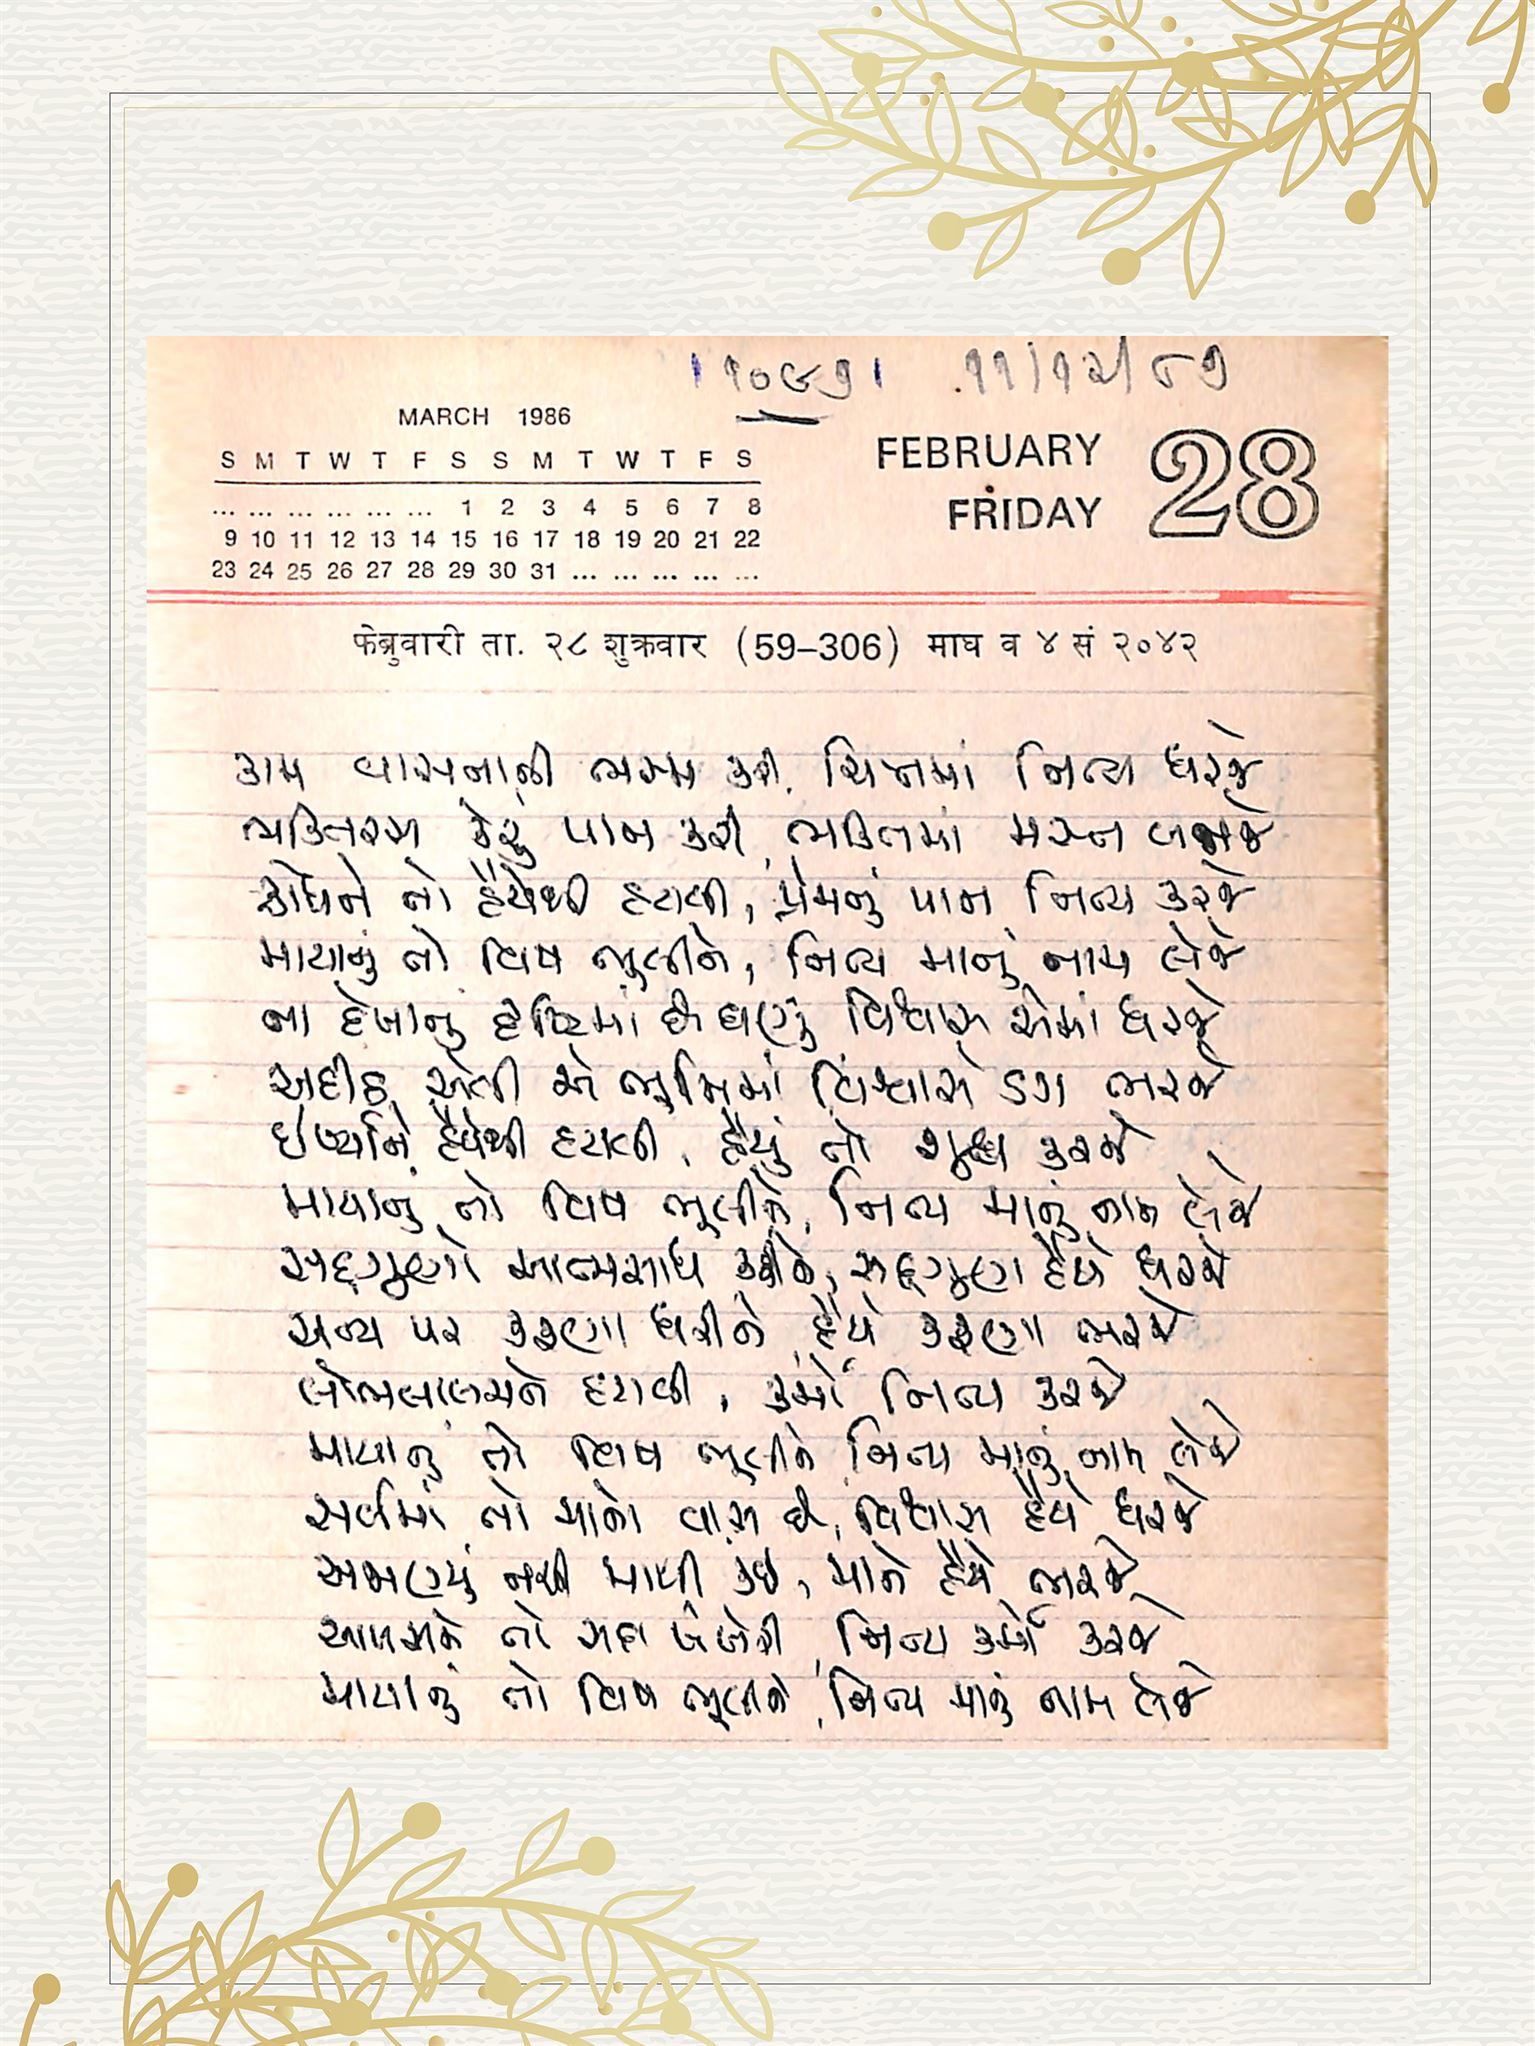 ૧૦૯૧ ૧૧/૧૨/૮૭
MARCH 1986
S M T W T F S S M T W T F S
... ... ... ... ... ... 1 2 3 4 5 6 7 8
9 10 11 12 13 14 15 16 17 18 19 20 21 22
23 24 25 26 27 28 29 30 31 ... ... ... ... ...
FEBRUARY 28
FRIDAY
फेब्रुवारी ता. २८ शुक्रवार (59–306) माघ व ४ सं २०४२
કામ વાસનાની ભસ્મ કરી, ચિત્તમાં નિત્ય ધરજે
ભક્તિરસ કેરું પાન કરી, ભક્તિમાં મસ્ત બનજે
ક્રોધને તો હૈયેથી હટાવી, પ્રેમનું પાન નિત્ય કરજે
માયાનું તો વિષ ભુલીને, નિત્ય માનું નામ લેજે
ના દેખાતું દૃષ્ટિમાં છે ઘણું વિશ્વાસ એમાં ધરજે
અદીઠ એવી એ ભૂમિમાં વિશ્વાસે ડગ ભરજે
ઈર્ષ્યાને હૈયેથી હટાવી, હૈયું તો શુદ્ધ કરજે
માયાનું તો વિષ ભૂલીને, નિત્ય માનું નામ લેજે
સદ્ગુણો આત્મસાધ કરીને, સદ્ગુણ હૈયે ધરજે
અન્ય પર કરુણા ધરીને, હૈયે કરુણા ભરજે
લોભલાલચને હટાવી, કર્મો નિત્ય કરજે
માયાનું તો વિષ ભૂલીને નિત્ય માનું નામ લેજે
સર્વમાં તો માનો વાસ છે, વિશ્વાસ હૈયે ધરજે
અજાણ્યું નથી માથી કંઈ, માને હૈયે ભરજે
આળસને તો સદા ખંખેરી, નિત્ય કર્મો કરજે
માયાનું તો વિષ ભૂલીને, નિત્ય માનું નામ લેજે